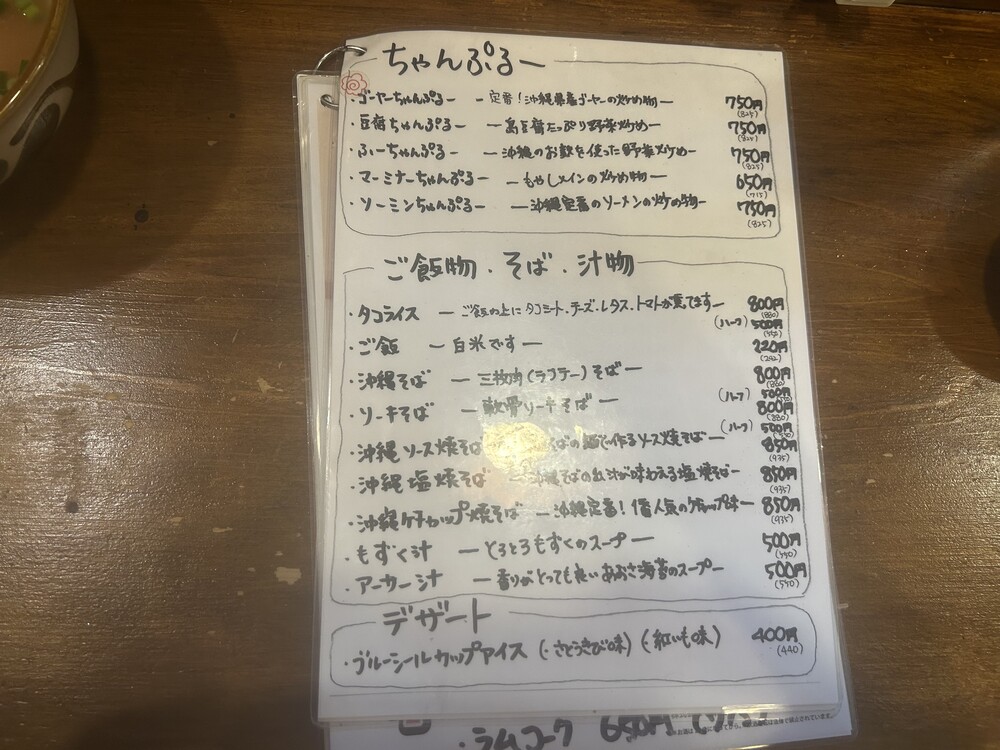 ちゃんぷるー
・ゴーヤーちゃんぷるー ー定番！沖縄県産ゴーヤーの炒め物ー 750円
(825)
・豆腐ちゃんぷるー ー島豆腐たっぷり野菜炒めー 750円
(825)
・ふーちゃんぷるー ー沖縄のお麩を使った野菜炒めー 750円
(825)
・マーミナーちゃんぷるー ーもやしメインの炒め物ー 650円
(715)
・ソーミンちゃんぷるー ー沖縄定番のソーメンの炒め物ー 750円
(825)
ご飯物・そば・汁物
・タコライス ーご飯の上にタコミート、チーズ、レタス、トマトが乗てますー 800円
(880)
(ハーフ) 500円
(550)
・ご飯 ー白米ですー 220円
(242)
・沖縄そば ー三枚肉(ラフテー)そばー 800円
(880)
(ハーフ) 500円
・ソーキそば ー軟骨ソーキそばー 800円
(880)
(ハーフ) 500円
・沖縄ソース焼そば そばの麺で作るソース焼そばー 850円
(935)
・沖縄塩焼そば ー沖縄そばの出汁が味わえる塩焼そばー 850円
(935)
・沖縄ケチャップ焼そば ー沖縄定番！1番人気のケチャップ味ー 850円
(935)
・もずく汁 ーとろとろもずくのスープー 500円
(550)
・アーサー汁 ー香りがとっても良いあおさ海苔のスープー 500円
(550)
デザート
・ブルーシールカップアイス (・さとうきび味) (・紅いも味) 400円
(440)
・ラムコーク 650円